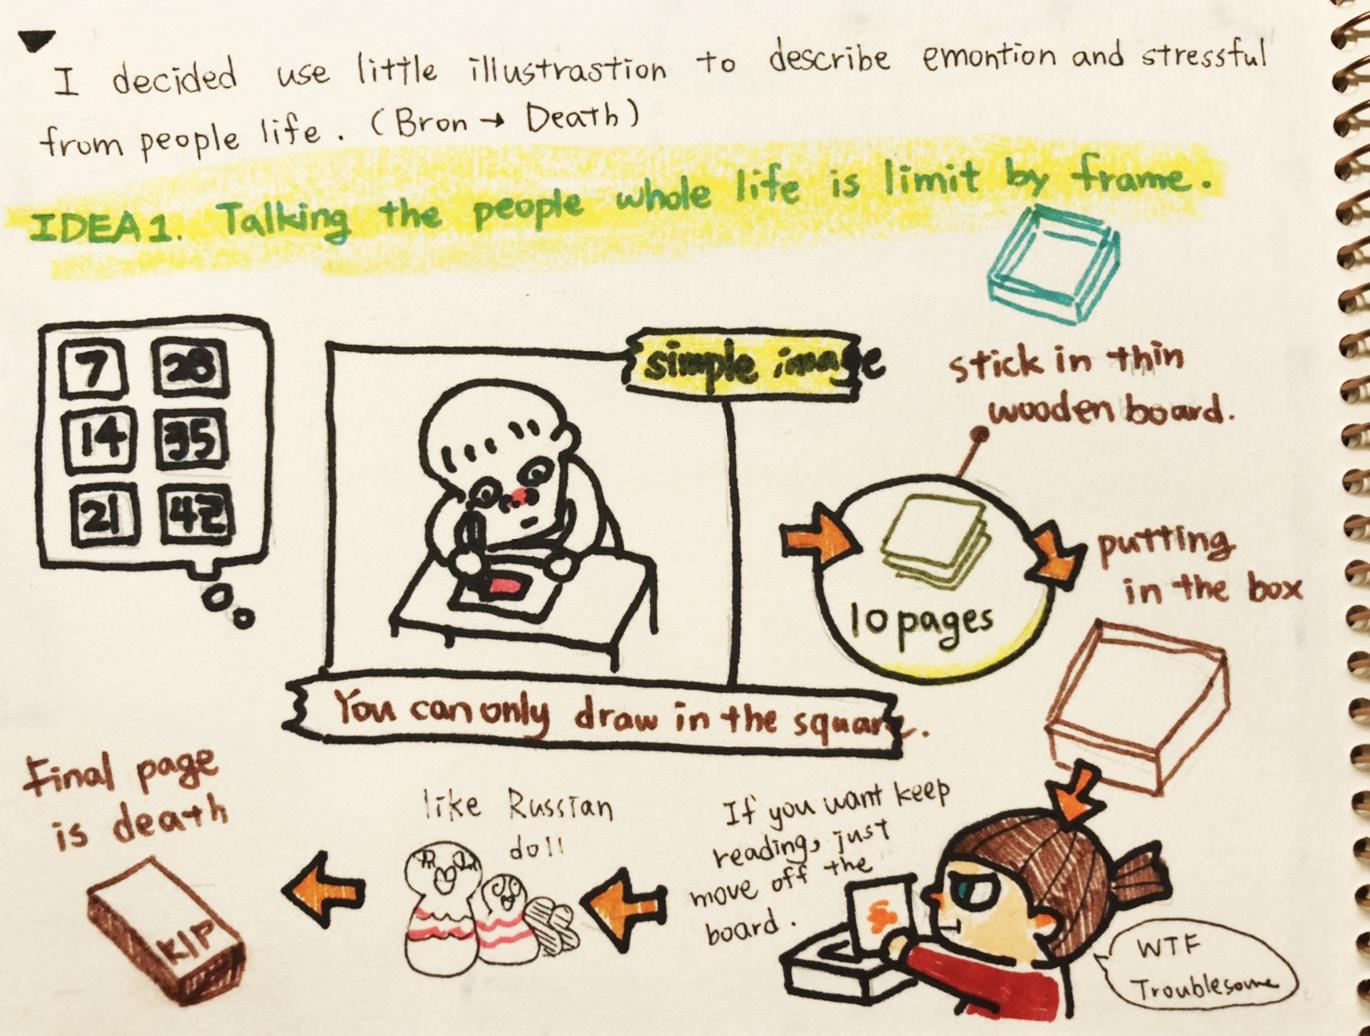 I decided use little illustrastion to describe emontion and stressful
from people life. (Bron → Death)
IDEA1. Talking the people whole life is limit by frame.
7 28
14 35
21 42
simple image
You can only draw in the square.
stick in thin
wooden board.
10 pages
putting
in the box
WTF
Troublesome
If you want keep
reading, just
move off the
board.
like Russian
doll
Final page
is death
RIP